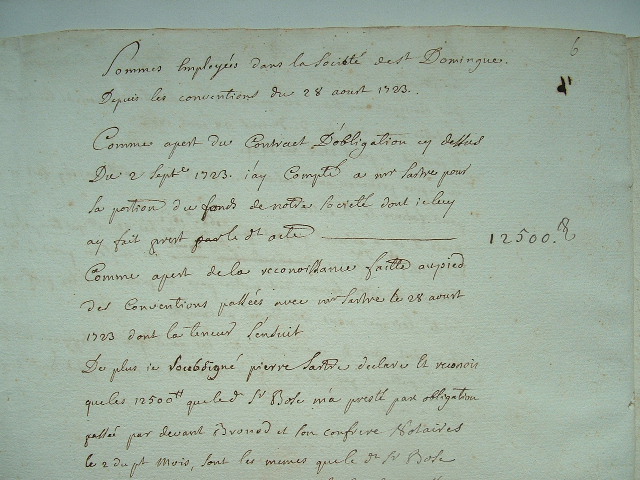 6
Sommes Employées dans la Societé de St Domingue.
Depuis les conventions du 28 aoust 1723.
Comme apert du Contract D'obligation cy dessus
Du 2 Septe 1723. j'ay Compté a mr Sartre pour
sa portion du fonds de notre Societé dont je luy
ay fait prest par le dt acte ——— 12500.tt
Comme apert de la reconoissance faitte au pied
des Conventions passées avec mr Sartre le 28 aoust
1723 dont la teneur s'ensuit
De plus je Soubsigné pierre Sartre declare Et reconois
que les 12500tt que le d. Sr Bose m'a presté par obligation
passée par devant Bronod et son confrere Notaires
le 2 du pt Mois, sont les memes que le dt Sr Bose